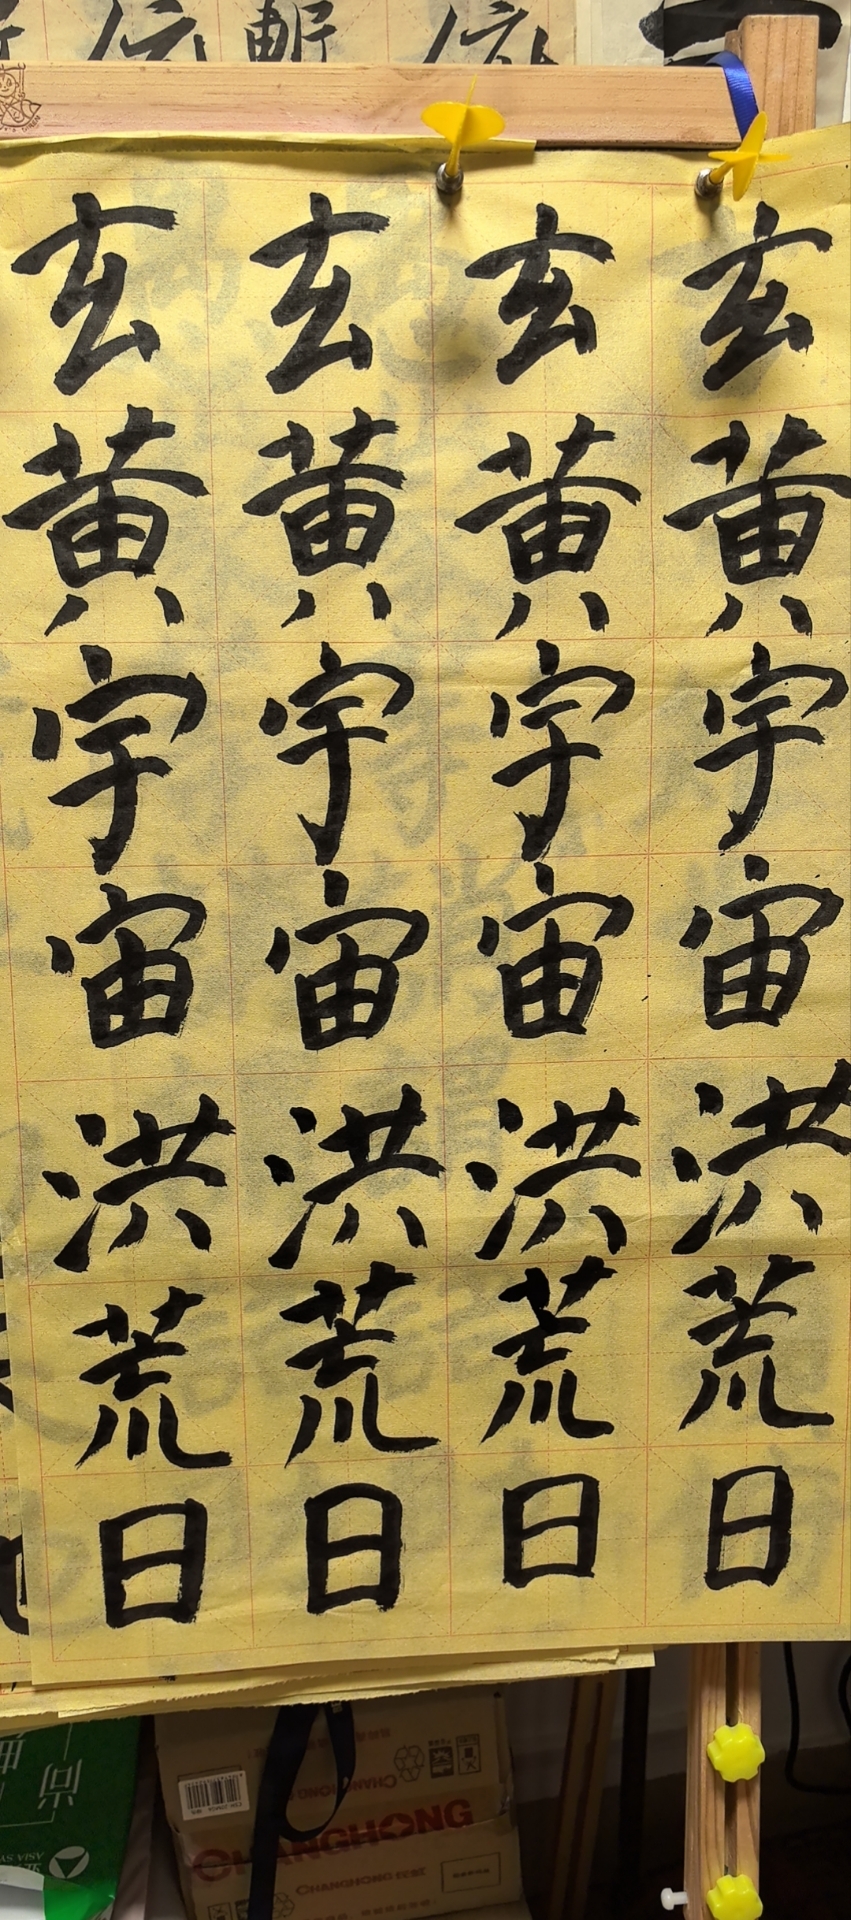 玄黄宇宙洪荒日
玄黄宇宙洪荒日
玄黄宇宙洪荒日
玄黄宇宙洪荒日
CHANGHONG
CHANGHONG
CHANGHONG